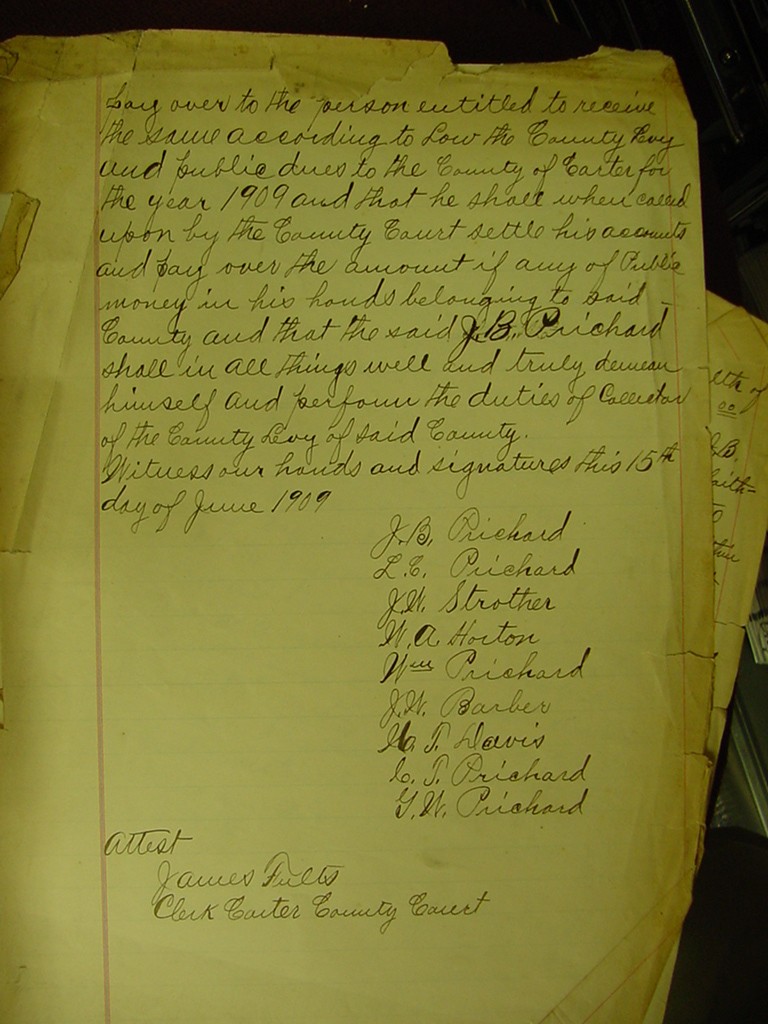 pay over to the person entitled to receive
the same according to Low the County Levy
and public dues to the County of Carter for
the year 1909 and that he shall when called
upon by the County Court settle his accounts
and pay over the amount if any of Public
money in his hands belonging to said -
County and that the said J. B. Prichard
shall in all things well and truly demean
himself and perform the duties of Collector
of the County Levy of said County.
Witness our hands and signatures this 15th
day of June 1909
J. B. Prichard
L. C. Prichard
J. W. Strother
W. A Horton
Wm Prichard
J. W. Barber
T. Davis
C. T. Prichard
G. W. Prichard
Attest
James Fults
Clerk Carter County Court
lth of
oo
J.B.
faith-